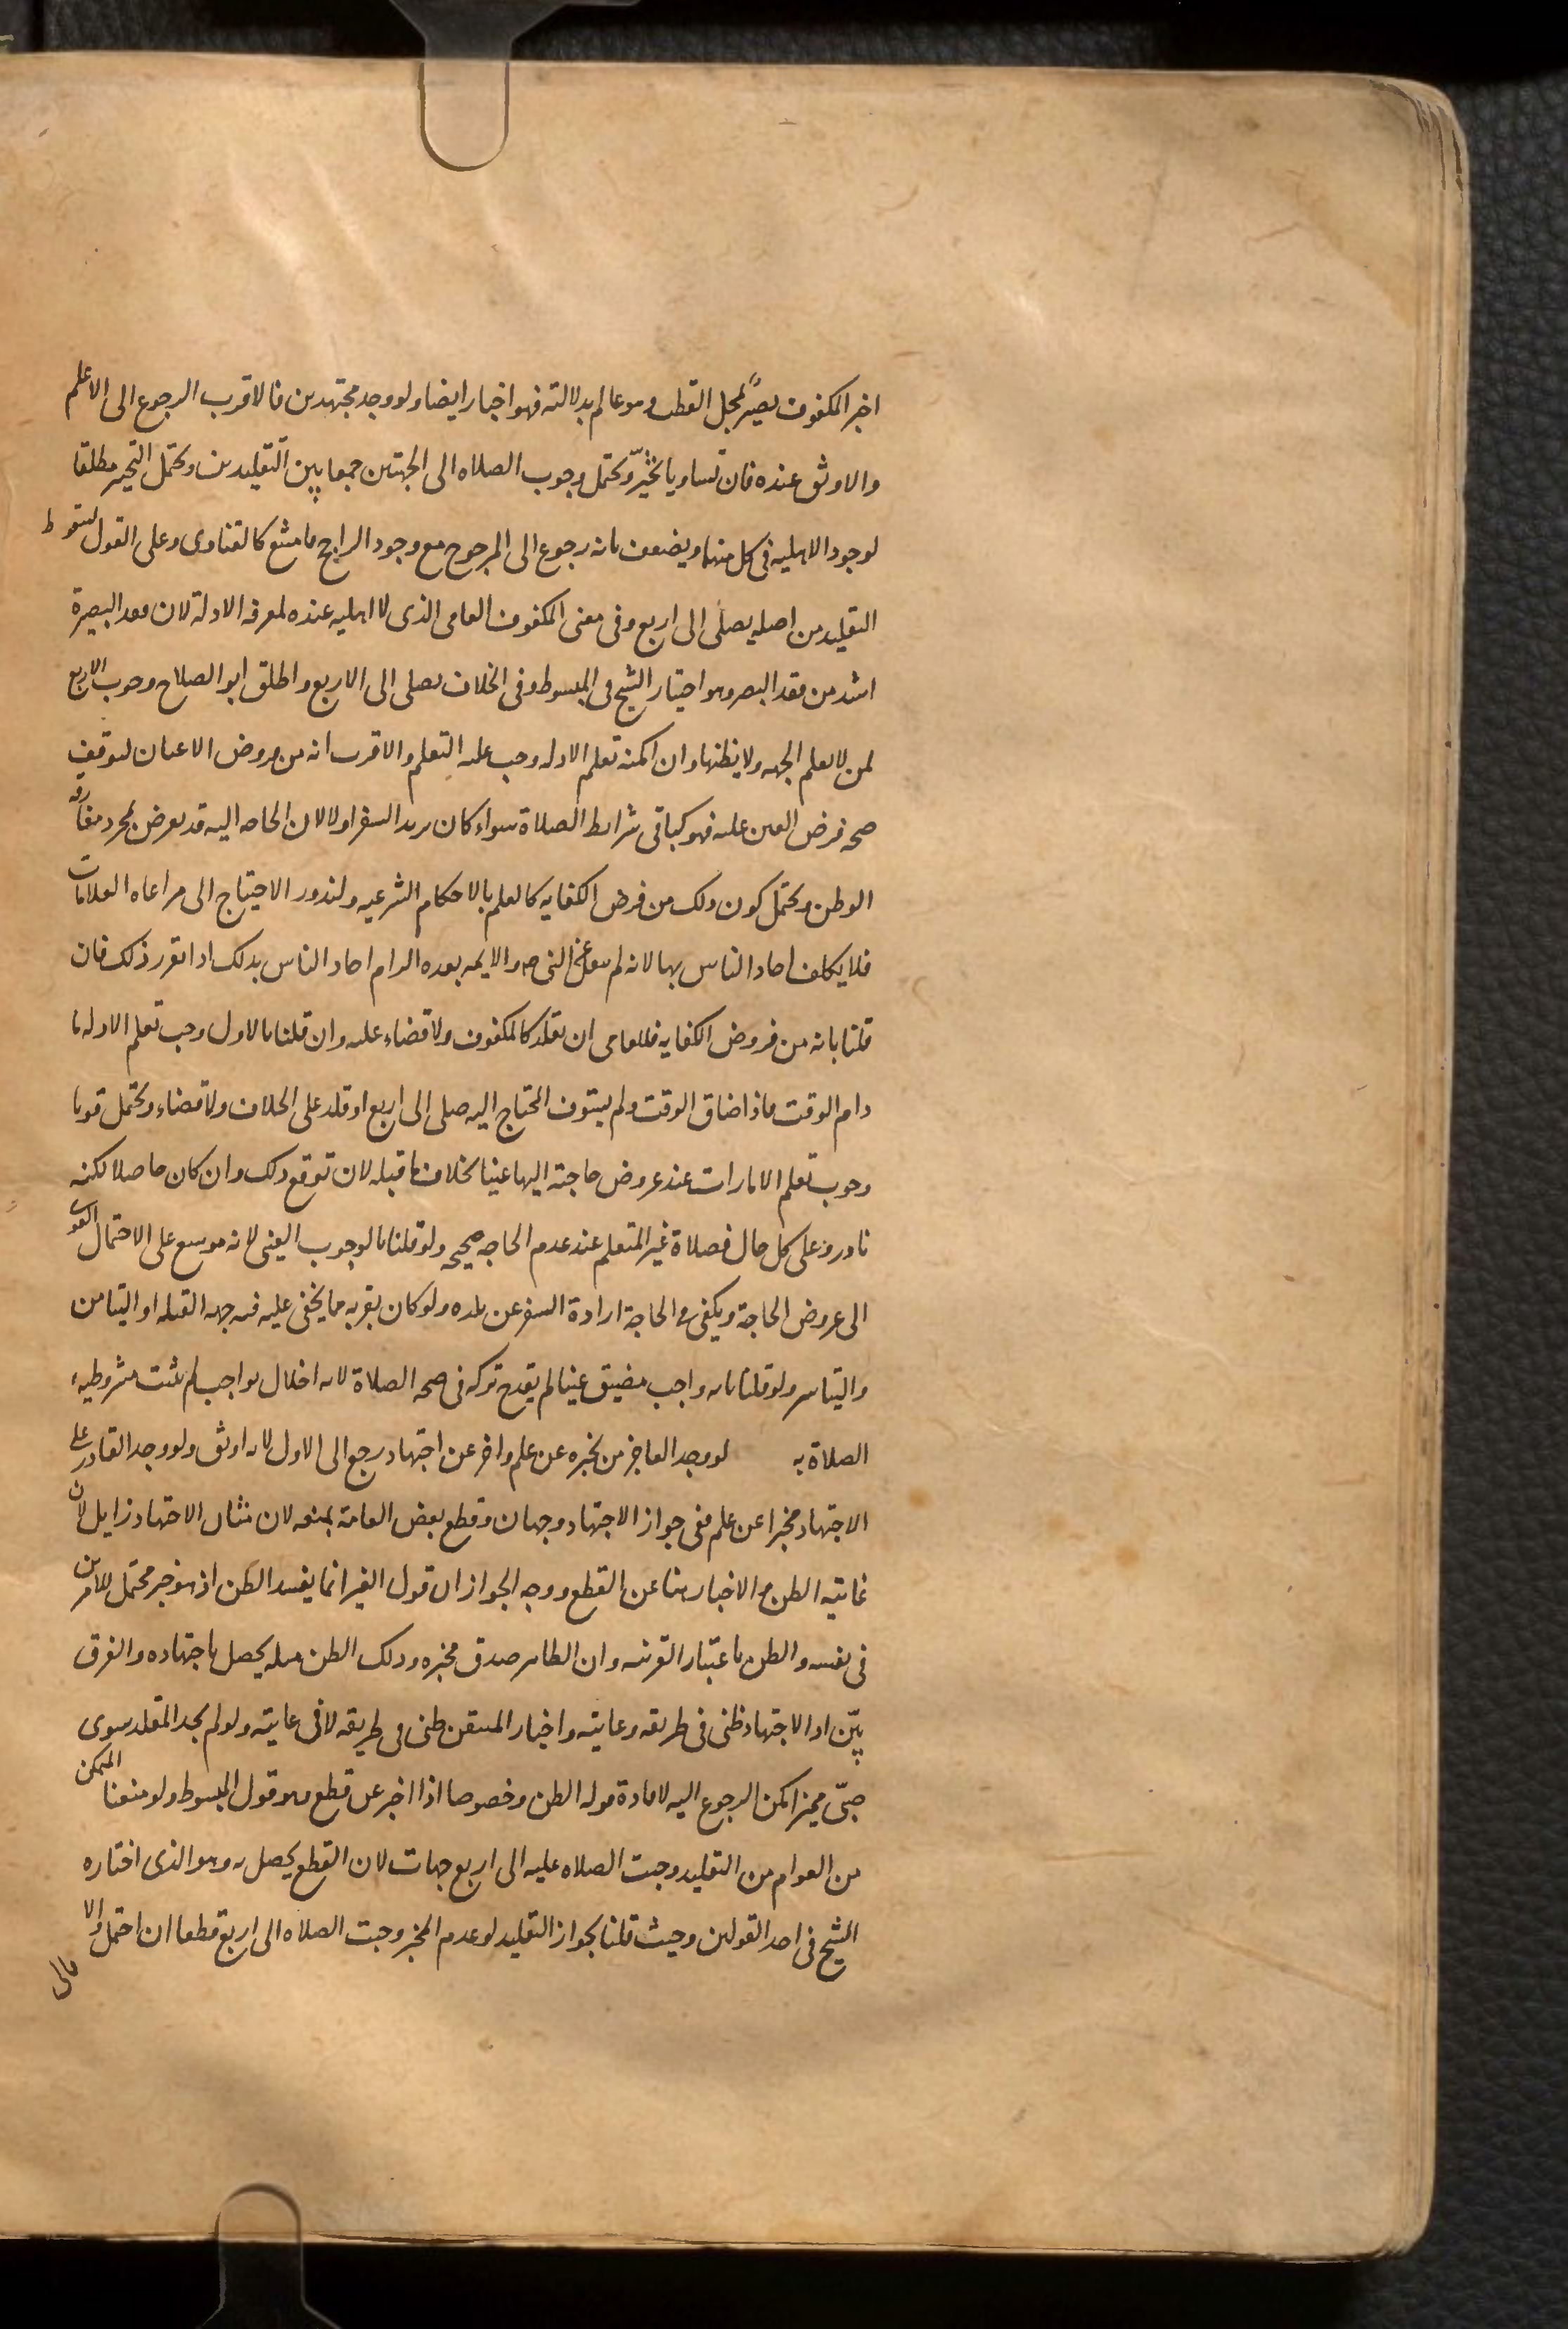 اخبر المكفوف بصير بمحل القطب وهو عالم بدلالته فهو اخبار ايضا ولو وجد مجتهدين فالاقرب الرجوع الى الاعلم
والاوثق عنده فان تساويا تخير ويحتمل وجوب الصلاه الى الجهتين جمعا بين التقليدين ويحتمل التخير مطلقا
لوجود الاهليه فى كل منهما ويضعف بانه رجوع الى المرجوح مع وجود الراجح فامتنع كالفتاوى وعلى القول بسقوط
التقليد من اصله يصلى الى اربع وفى معنى المكفوف العامى الذى لا اهليه عنده لمعرفه الادلة لان فقد البصيرة
اشد من فقد البصر وهو اختيار الشيخ فى المبسوط وفى الخلاف يصلى الى الاربع واطلق ابو الصلاح وجوب الاربع
لمن لا يعلم الجهه ولا يظنها وان امكنه تعلم الادله وجب عليه التعلم والاقرب انه من فروض الاعيان لتوقف
صحه فرض العين عليه فهو كباقى شرايط الصلاة سواء كان يريد السفر اولا لان الحاجه اليه قد يعرض بمجرد مفارقه
الوطن ويحتمل كون ذلك من فرض الكفايه كالعلم بالاحكام الشرعيه ولندور الاحتياج الى مراعاه العلامات
فلا يكلف احاد الناس بها لانه لم ينقل عن النبى ص والايمه بعده الزام احاد الناس بذلك اذا تقرر ذلك فان
قلنا بانه من فروض الكفايه فللعامى ان يقلد كالمكفوف ولا قضاء عليه وان قلنا بالاول وجب تعلم الادله ما
دام الوقت فاذا ضاق الوقت ولم يستوف المحتاج اليه صلى الى اربع او قلد على الخلاف ولا قضاء ويحتمل قويا
وجوب تعلم الامارات عند عروض حاجة اليها عينا بخلاف ما قبله لان توقع ذلك وان كان حاصلا لكنه
نادر وعلى كل حال فصلاة غير المتعلم عند عدم الحاجه صحيحه ولو قلنا بالوجوب العينى لانه موسع على الاحتمال القوى
الى عروض الحاجة ويكفى فى الحاجة ارادة السفر عن بلده ولو كان بقربه مما يخفى عليه فيه جهه القبله او التيامن
والتياسر ولو قلنا بانه واجب مضيق عينا لم يقدح تركه فى صحه الصلاة لانه اخلال بواجب لم تثبت مشروطيه
الصلاة به لو وجد العاجز من يخبره عن علم واخر عن اجتهاد رجع الى الاول لانه اوثق ولو وجد القادر على
الاجتهاد مخبرا عن علم ففى جواز الاجتهاد وجهان وقطع بعض العامة بمنعه لان الاجتهاد زايل لان
غايته الظن والاخبار هنا عن القطع ووجه الجواز ان قول الغير انما يفيد الظن اذ هو خبر محتمل للامرين
فى نفسه والظن باعتبار القرينه وان الظاهر صدق مخبره وذلك الظن مثله يحصل باجتهاده والفرق
بين اذ الاجتهاد ظنى فى طريقه وغايته واخبار المتيقن ظنى فى طريقه لا فى غايته ولو لم يجد المقلد سوى
صبى مميز امكن الرجوع اليه لافادة قوله الظن وخصوصا اذا اخبر عن قطع وهو قول المبسوط ولو منعنا المتمكن
من العوام من التقليد وجبت الصلاه عليه الى اربع جهات لان القطع يحصل به وهو الذى اختاره
الشيخ فى احد القولين وحيث قلنا بجواز التقليد لو عدم المخبر وجبت الصلاه الى اربع قطعا ان احتمل والا
فالى